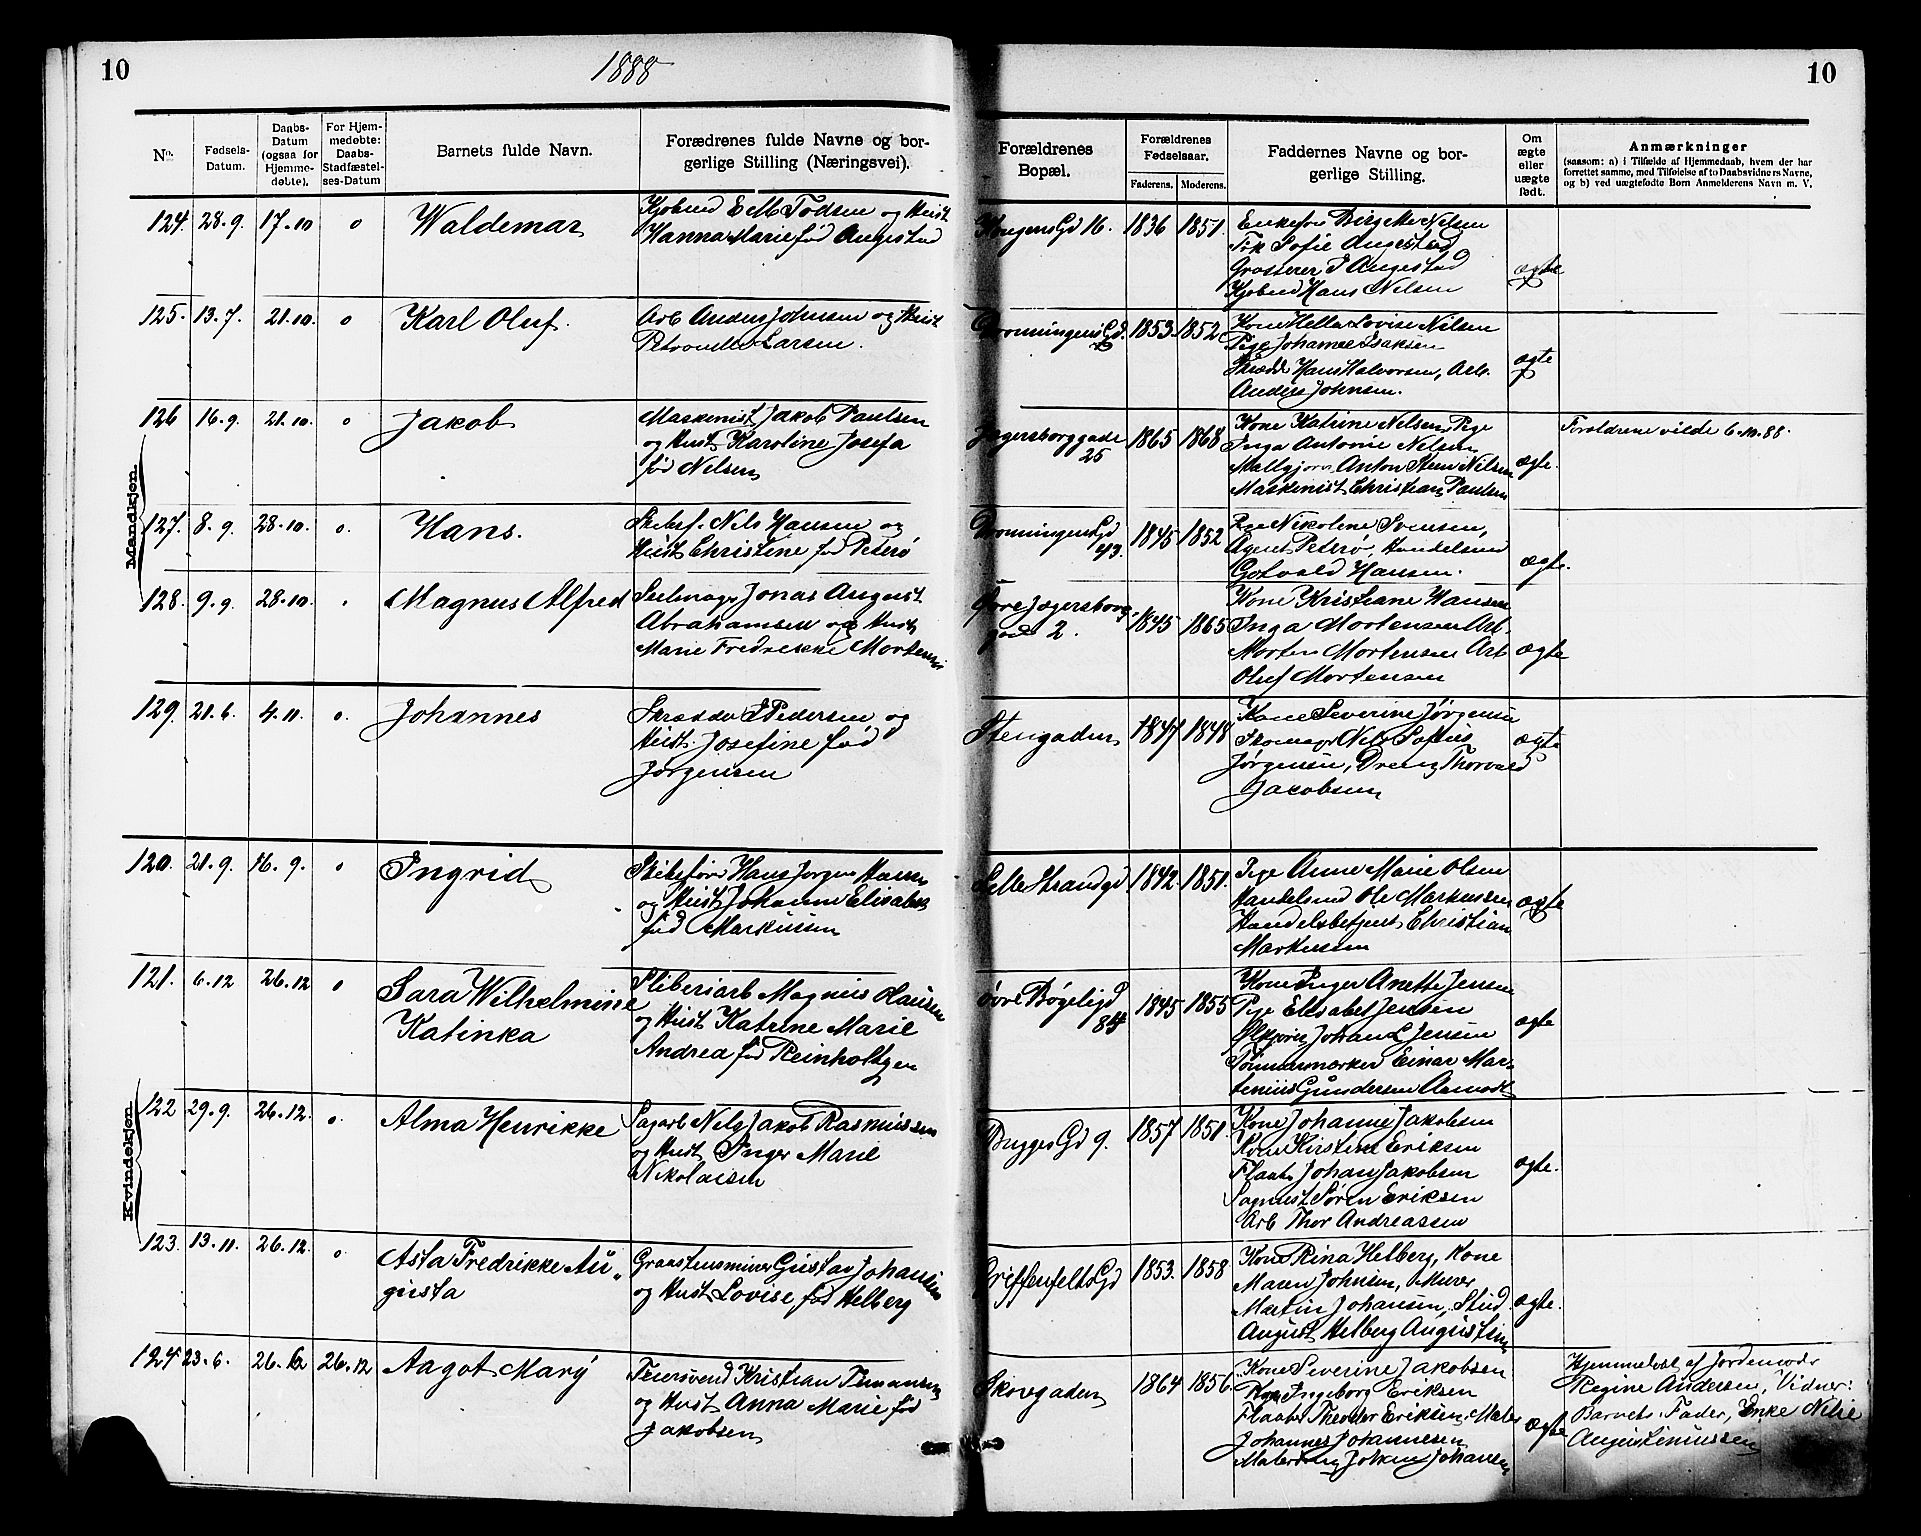 10
1888
10
No.
Fødsels-
Datum.
Daabs-
Datum
(ogsaa for
Hjemme-
døbte).
For Hjem-
medøbte:
Daabs-
Stadfæstel-
ses-Datum
Barnets fulde Navn.
Forædrenes fulde Navne og bor-
gerlige Stilling (Næringsvei).
Forældrenes
Bopæl.
Forældrenes
Fødselsaar.
Faderens.
Moderens.
Faddernes Navne og bor-
gerlige Stilling.
Om
ægte
eller
uægte
født.
Anmærkninger
(saasom: a) i Tilfælde af Hjemmedaab, hvem der har
forrettet samme, med Tilføielse af to Daabsvidners Navne,
og b) ved uægtefødte Børn Anmelderens Navn m. V.
Mandkjøn.
124. 28.9. 17.10 0 Waldemar
Kjøbmd E M Todsen og Hust
Hanna Marie fød Angestad
Kongens Gd 16. 1836 1851.
Enkefru Birgitte Nilsen
Frk Sofie Angestad
Grosserer J Angestad
Kjøbmd Hans Nilsen
ægte
125. 13.7. 21.10. 0 Karl Oluf.
Arb Anders Johnsen og Hust
Petronelle Larsen.
Dronningens Gd. 1853. 1852
Kone Lovise Nilsen
Pige Johanne Isaksen
Hans Halvorsen, Arb.
Anders Johnsen.
ægte
126 16.9. 21.10. 0 Jakob
Maskinist Jakob Paulsen
og Hust Karoline Josefa
fød Nelsen
Jegersborggade
25
1865 1868
Kone Katrine Nelsen, Pige
Inga Antonie Nelsen
Anton Nilsen
Maskinist Christian Paulsen
ægte.
Foreldrene viede 6.10.88.
127. 8.9. 28.10. 0. Hans.
Skibsf. Nils Hansen og
Hust Christine fød Peterø
Dronningens Gd
43.
1845 1852
Pige Nikoline Svensen,
Agnes Peterø, Handelsmd
Gotvald Hansen.
ægte.
128. 9.9. 28.10. Magnus Alfred
Seilmager Jonas August
Abrahamsen og Hust
Marie Fredrikke Mortensen
Øvre Jegersborg
gade 2.
1845 1865
Kone Kristiane Hansen
Inga Mortensen Arb.
Morten Mortensen Arb
Oluf Mortensen
ægte
129. 21.6. 4.11. 0. Johannes
Skrædder J Pedersen og
Hust. Josefine fød
Jørgensen
Stengaden 1847 1848
Kone Severine Jørgensen
Skomager Nils Sofus
Jørgensen, Dreng Thorvald
Jacobsen
ægte
Kvindekjøn.
120. 21.9. 16.9. 0 Ingrid
Skibsfører Hans Jørgen Hansen
og Hust Johanne Elisabeth
fød Markussen
Lille Strandgd 1842. 1851.
Pige Anne Marie Olsen
Handelsmd Ole Markussen
Handelsbetjent Christian
Markussen
ægte
121. 6.12 26.12 0 Sara Wilhelmine
Katinka
Sliberiarb Magnus Hansen
og Hust Katrine Marie
Andrea fød Reinholtzen
Øvre Bøgeligd
84
1845 1855
Kone Inger Anette Jensen
Pige Elisabet Jensen
Johan L Jensen
Tømmermærker Einar Mar-
tinius Gundersen Aamodt
ægte
122 29.9. 26.12. 0. Alma Henrikke
Sagarb Nils Jakob Rasmussen
og Hust Inger Marie
Nikolaisen
Brygges Gd 9. 1857 1851.
Kone Johanne Jakobsen
Kone Kirstine Eriksen
Fløder Johan Jakobsen
Sagmest Søren Eriksen
Arb Thor Andreassen
ægte.
123. 13.11. 26.12. 0 Asta Fredrikke Au„
gusta
Graastensminer Gustav Johansen
og Hust Lovise fød Helberg
Griffenfelts Gd 1853. 1858
Kone Rina Helberg, Kone
Maren Johnsen, Murer
Martin Johansen, Stud
August Helberg Augustinius
ægte.
124 23.6. 26.12 26.12 Aagot Mary
Feiersvend Kristian
og Hust Anna Marie fød
Jakobsen
Skovgaden 1864 1856.
Kone Severine Jakobsen
Pige Ingeborg Eriksen
Theodor Eriksen, Maler
Johannes Johannesen
Johansen
ægte
Hjemmedøbt af Jordemoder
Regine Andersen, Vidner:
Barnets Fader, Enke Nilie
Augustinussen